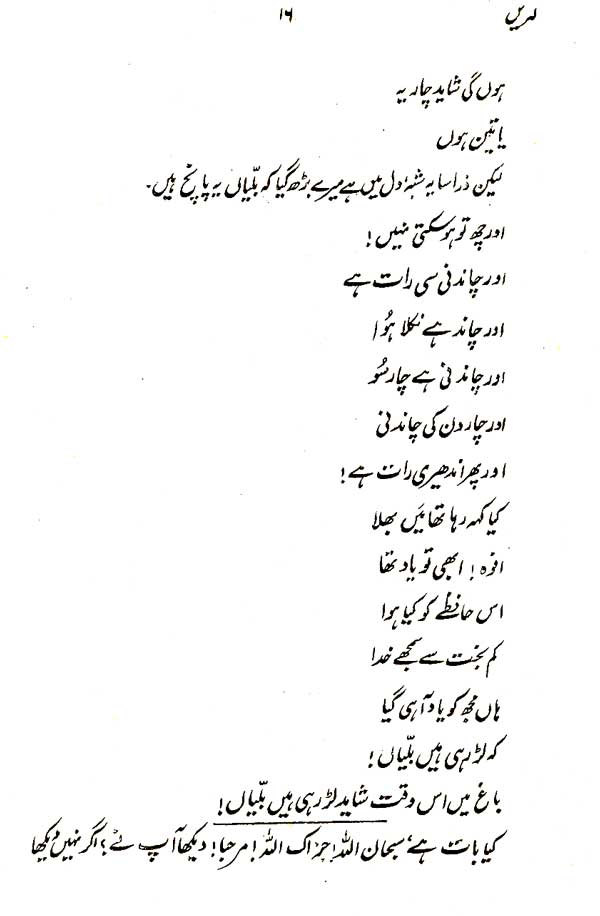 لہریں ۱۶
ہوں گی شاید چار یہ
یا تین ہوں
لیکن ذرا سا یہ شبہٴ دل میں ہے میرے بڑھ گیا کہ بلّیاں یہ پانچ ہیں۔
اور چھ تو ہو سکتی نہیں!
اور چاندنی سی رات ہے
اور چاند ہے نکلا ہُوا
اور چاندنی ہے چار سُو
اور چار دن کی چاندنی
اور پھر اندھیری رات ہے!
کیا کہہ رہا تھا مَیں بھلا
افوہ! ابھی تو یاد تھا
اس حافظے کو کیا ہوا
کم بخت سے سمجھے خدا
ہاں مجھ کو یاد آ ہی گیا
کہ لڑ رہی ہیں بلّیاں!
باغ میں اس وقت شاید لڑ رہی ہیں بلّیاں!
کیا بات ہے، سبحان اللہ! جزاک اللہ! مرحبا! دیکھا آپ نے؟ اگر نہیں دیکھا